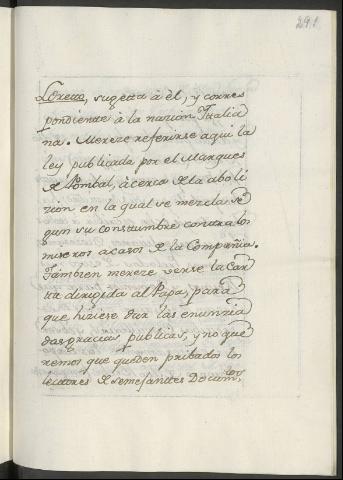 291
Loreto, sugetta à èl, y corres
pondiente à la nazion Ittalia
na. Mereze referirse aqui la
ley publicada por el Marques
de Pombal, à cerca de la aboli
zion en la qual se mezcla se
gun su constumbre contra los
miseros acasos de la Compañia.
Tambien mereze verse la Car
tta dirigida al Papa, para
que hiziese dar las enunzia
das gracias publicas, y no que
remos que queden pribados los
lectores de semejanttes Docum.tos